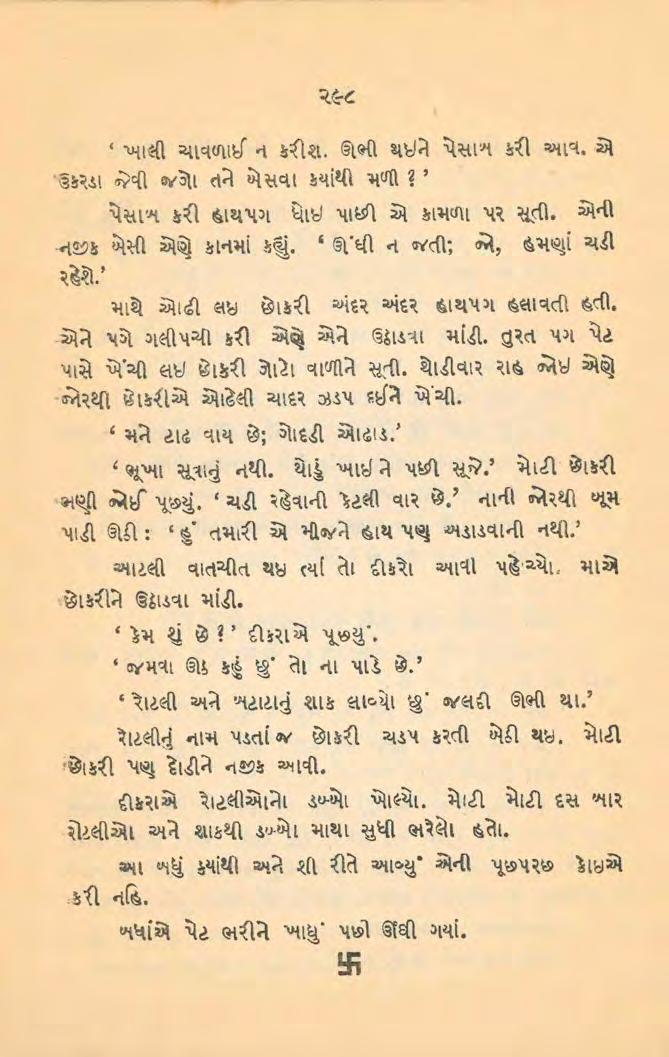 ૨૯૮
‘ ખાલી ચાવળાઈ ન કરીશ. ઊભી થઇને પેસાબ કરી આવ. એ
ઉકરડા જેવી જગો તને બેસવા ક્યાંથી મળી ? ’
પેસાબ કરી હાથપગ ધોઇ પાછી એ કામળા પર સૂતી. એની
નજીક બેસી એણે કાનમાં કહ્યું. ‘ ઊંઘી ન જતી; જો, હમણાં ચડી
રહેશે.’
માથે ઓઢી લઇ છોકરી અંદર અંદર હાથપગ હલાવતી હતી.
એને પગે ગલીપચી કરી એણે એને ઉઠાડવા માંડી. તુરત પગ પેટ
પાસે ખેંચી લઇ છોકરી ગોટો વાળીને સૂતી. થોડીવાર રાહ જોઇ એણે
જોરથી છોકરીએ ઓઢેલી ચાદર ઝડપ દઈને ખેંચી.
‘ મને ટાઢ વાય છે; ગોદડી ઓઢાડ.’
‘ ભૂખા સૂવાનું નથી. થોડું ખાઇને પછી સૂજે.’ મોટી છોકરી
ભણી જોઈ પૂછયું. ‘ ચડી રહેવાની કેટલી વાર છે.’ નાની જોરથી બૂમ
પાડી ઊઠી : ‘ હું તમારી એ મીજને હાથ પણ અડાડવાની નથી.’
આટલી વાતચીત થઇ ત્યાં તો દીકરો આવી પહોંચ્યો. માએ
છોકરીને ઉઠાડવા માંડી.
‘ કેમ શું છે ? ’ દીકરાએ પૂછયું.
‘ જમવા ઊઠ કહું છું તો ના પાડે છે.’
‘ રોટલી અને બટાટાનું શાક લાવ્યો છું જલદી ઊભી થા.’
રોટલીનું નામ પડતાં જ છોકરી ચડપ કરતી બેઠી થઇ. મોટી
છોકરી પણ દોડીને નજીક આવી.
દીકરાએ રોટલીઓનો ડબ્બો ખોલ્યો. મોટી મોટી દસ બાર
રોટલીઓ અને શાકથી ડબ્બો માથા સુધી ભરેલો હતો.
આ બધું ક્યાંથી અને શી રીતે આવ્યું એની પૂછપરછ કોઇએ
કરી નહિ.
બધાંએ પેટ ભરીને ખાધું પછી ઊંઘી ગયાં.
卐